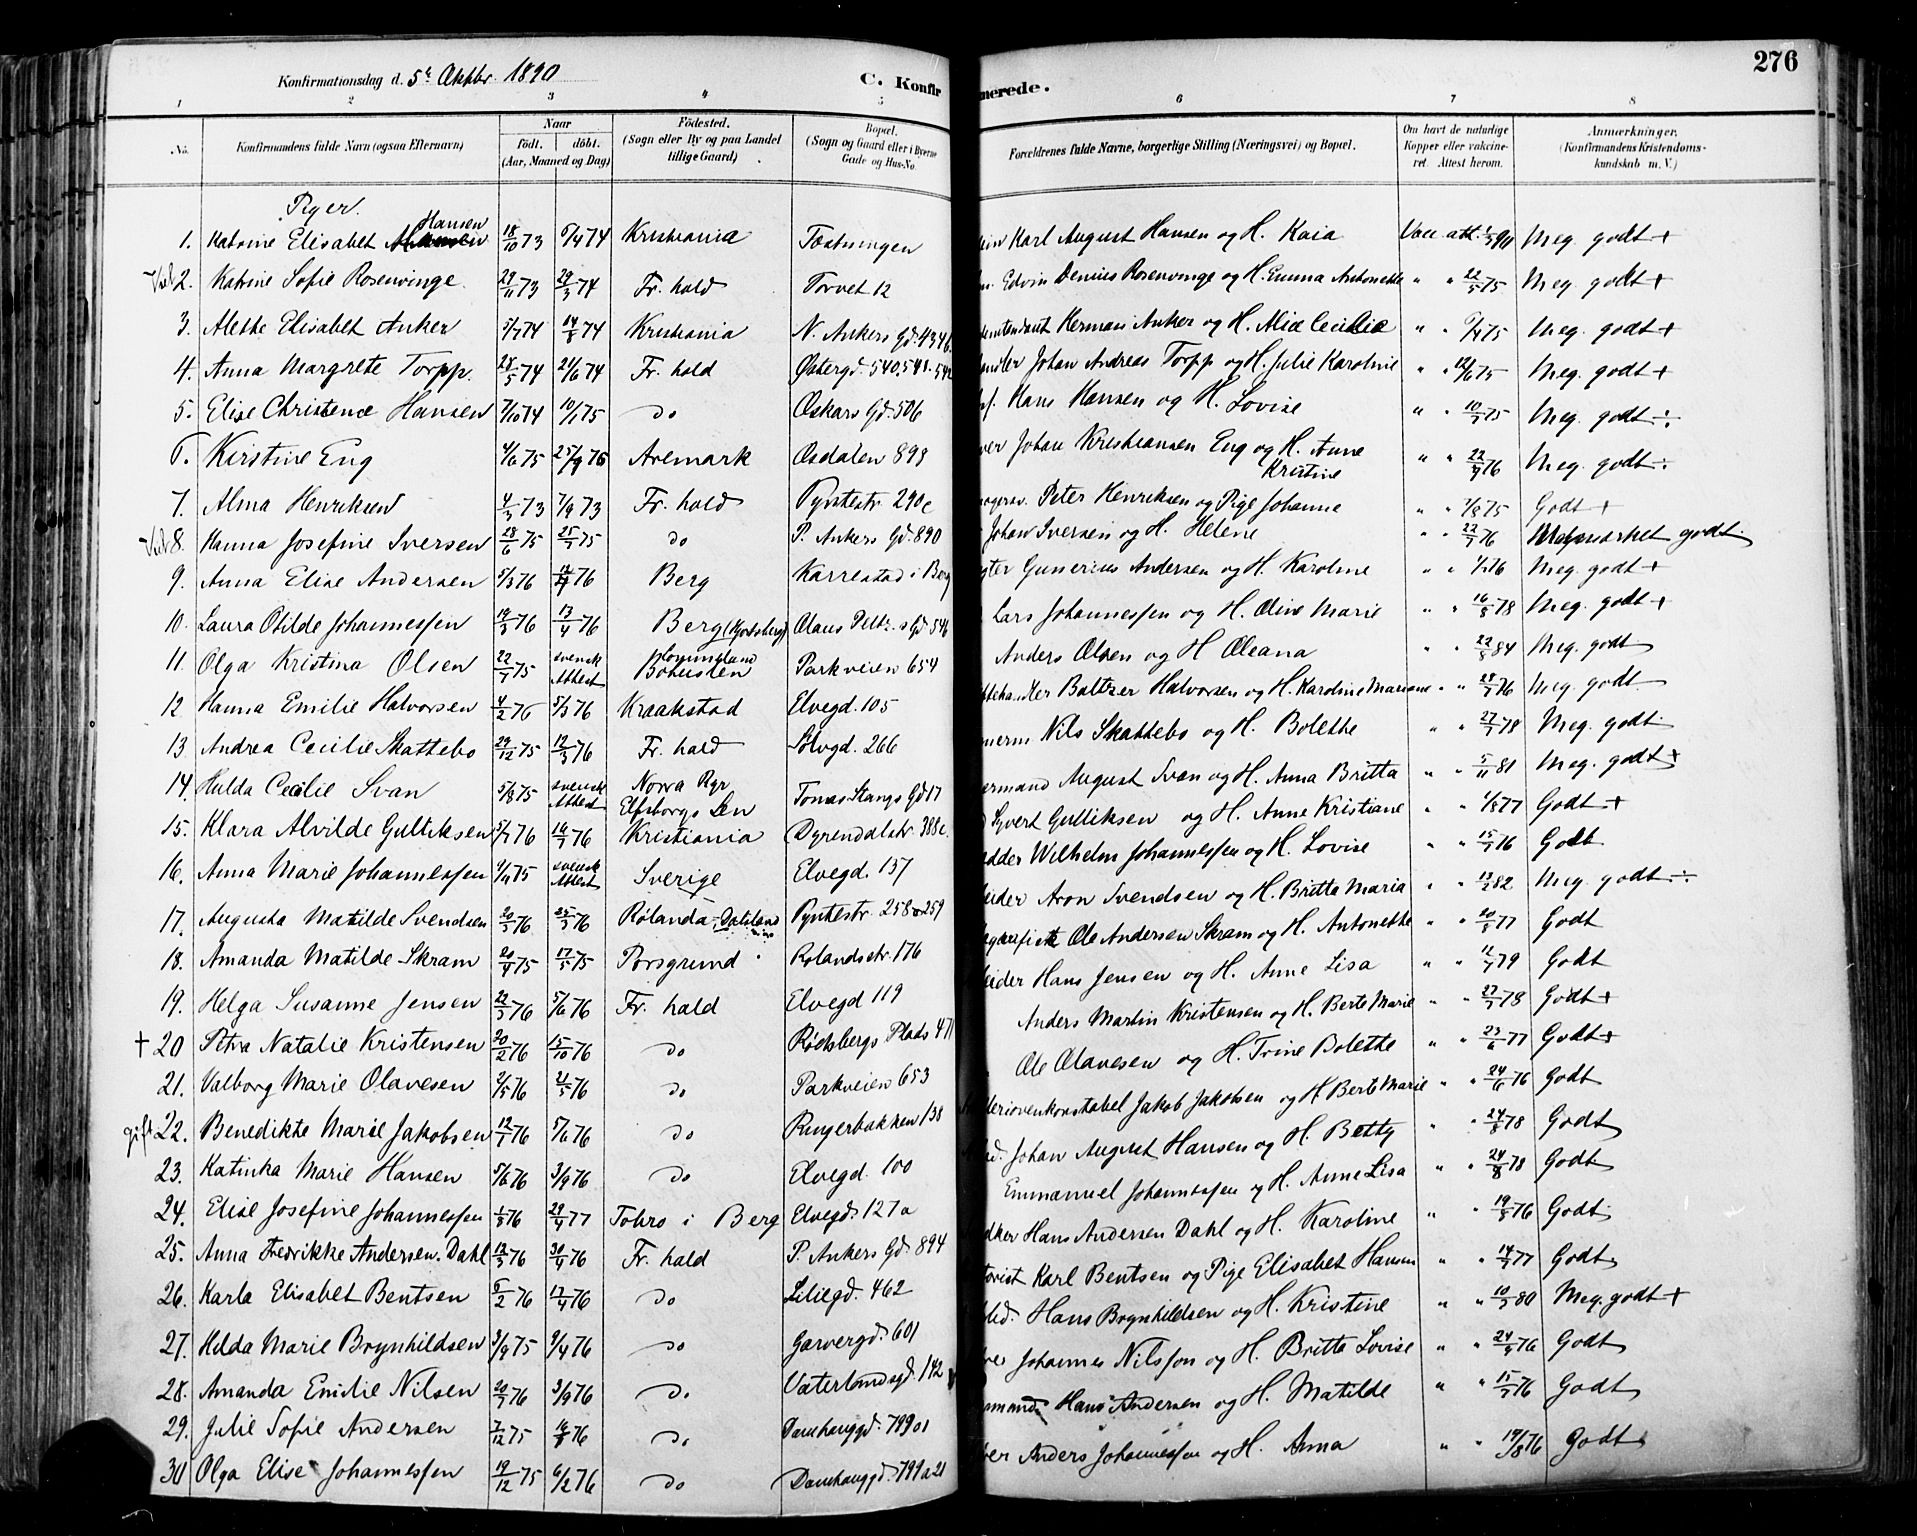 276
Konfirmationsdag d. 5te Oktbr. 1890
C. Konfirmerede.
1 2 3 4 5 6 7 8
No. Konfirmandens fulde Navn (ogsaa Efternavn) Naar født. døbt. (Aar, Maaned og Dag) Fødested. (Sogn eller By og paa Landet tillige Gaard) Bopæl. (Sogn og Gaard eller i Byerne Gade og Hus-No. Forældrenes fulde Navne, borgerlige Stilling (Næringsvei) og Bopæl. Om havt de naturlige Kopper eller vakcineret. Attest herom. Anmærkninger. (Konfirmandens Kristendomskundskab m. V.)
Piger.
1. Katrine Elisabet Hansen 18/10 73 6/4 74 Kristiania Fæstningen Karl August Hansen og H. Kaia Vacc. att. 90 Meg. godt +
2. Katrine Sofie Rosenvinge 29/11 73 29/3 74 Fr. hald Torvet 12 Edvin Denius Rosenvinge og H. Emma Antonette " " 22/5 75 Meg. godt +
3. Alethe Elisabet Anker 5/7 74 14/8 74 Kristiania N. Ankers Gd. 434 Herman Anker og H. Mix Cecilie " " 75 Meg. godt +
4. Anna Margrete Torpp. 28/5 74 21/6 74 Fr. hald Østergd. 540.541.542 Johan Andreas Torpp og H. Julie Karoline " " 12/6 75 Meg. godt +
5. Elise Christence Hansen 7/10 74 10/1 75 do Oskars Gd. 506 Hans Hansen og H. Lovise " " 10/7 75 Meg. godt ÷
6. Kirstine Eng 4/6 75 25/9 75 Aremark Osdalen 898 Johan Kristiansen Eng og H. Anne Kristine " " 22/9 76 Meg. godt ÷
7. Alma Henriksen 4/3 73 7/9 73 Fr. hald Pyntestr. 290c Peter Henriksen og Pige Johanne " " 7/8 75 Godt +
8. Hanna Josefine Iversen 28/6 75 25/7 75 do P. Ankers Gd. 890 Johan Iversen og H. Helene " " 22/7 76 godt
9. Anna Elise Andersen 5/3 76 76 Berg Karrestad i Berg Gunerius Andersen og H. Karoline " " 76 Meg. godt +
10. Laura Otilde Johannessen 19/3 76 13/4 76 Berg Olaus Gd 546 Lars Johannessen og H. Oline Marie " " 16/8 78 Meg. godt +
11. Olga Kristina Olsen 22/7 75 svensk Attest Bohuslen Parkveien 654 Anders Olsen og H Oleana " " 22/8 84 Meg. godt
12. Hanna Emilie Halvorsen 4/2 76 5/3 76 Kraakstad Elvegd. 105 Baltzer Halvorsen og H. Karoline Mariane " " 28/7 76 Meg. godt
13. Andrea Cecilie Skattebo 29/12 75 12/3 76 Fr. hald Sølvgd. 266 Nils Skattebo og H. Bolethe " " 27/7 78 Meg. godt
14. Hulda Cecilie Svan 5/8 75 svensk Attest Norra Ryr Elfsborgs Len Tomas Stangs Gd 17 August Svan og H. Anna Britta " " 5/11 81 Meg. godt +
15. Klara Alvilde Gulliksen 5/7 76 16/7 76 Kristiania Dyrendalstr. 388c. Syvert Gulliksen og H. Anne Kristiane " " 1/8 77 Godt +
16. Anna Marie Johannessen 4/4 75 svensk Attest Sverige Elvegd. 137 Wilhelm Johannessen og H. Lovise " " 15/7 76 Godt
17. Augusta Matilde Svendsen 20/3 76 25/3 76 Rølanda - Dalsland Pyntestr. 258 259 Aron Svendsen og H. Britta Maria " " 82 Meg. godt ÷
18. Amanda Matilde Skram 20/4 75 17/5 75 Porsgrund Rolandsstr. 176 Ole Andersen Skram og H. Antonette " " 20/8 77 Godt
19. Helga Susanne Jensen 22/3 76 5/6 76 Fr. hald Elvegd 119 Hans Jensen og H. Anne Lisa " " 79 Godt
† 20 Petra Natalie Kristensen 20/2 76 15/10 76 do Rødsbergs Plads 471 Anders Martin Kristensen og H. Berte Marie " " 27/7 78 Godt +
21. Valborg Marie Olavesen 2/5 76 21/5 76 do Parkveien 653 Ole Olavesen og H. Trine Bolette " " 23/6 77 Godt +
gift 22. Benedikte Marie Jakobsen 12/1 76 5/6 76 do Ringerbakken 138 Jakob Jakobsen og H Berte Marie " " 24/6 76 Godt
23. Katinka Marie Hansen 5/6 76 3/9 76 do Elvegd. 100 Johan August Hansen og H. Betty " " 24/8 78 Godt
24. Elise Josefine Johannessen 1/8 76 29/4 77 Tobro i Berg Elvegd. 127a Emmanuel Johannessen og H. Anne Lisa " " 24/8 78 Godt
25. Anna Fredrikke Andersen. Dahl 12/3 76 30/4 76 Fr. hald P. Ankers Gd. 894 Hans Andersen Dahl og H. Karoline " " 19/8 76 Godt
26. Karla Elisabet Bentsen 6/2 76 17/4 76 do Liliegd. 462 Karl Bentsen og Pige Elisabet Hansen " " 14/7 77 Godt
27. Hilda Marie Brynhildsen 3/9 75 9/4 76 do Garvergd. 601 Hans Brynhildsen og H. Kristine " " 10/7 80 Meg. godt +
28. Amanda Emilie Nilsen 20/7 76 3/9 76 do Vaterlandsgd. 142 Johannes Nilsson og H. Britta Lovise " " 24/8 76 Godt
29. Julie Sofie Andersen 7/12 75 16/8 76 do Damhauggd. Hans Andersen og H. Matilde " " 15/7 76 Godt
30 Olga Elise Johannessen 19/12 75 6/2 76 do Damhauggd. 799 a 21 Anders Johannessen og H. Anna " " 19/8 76 Godt